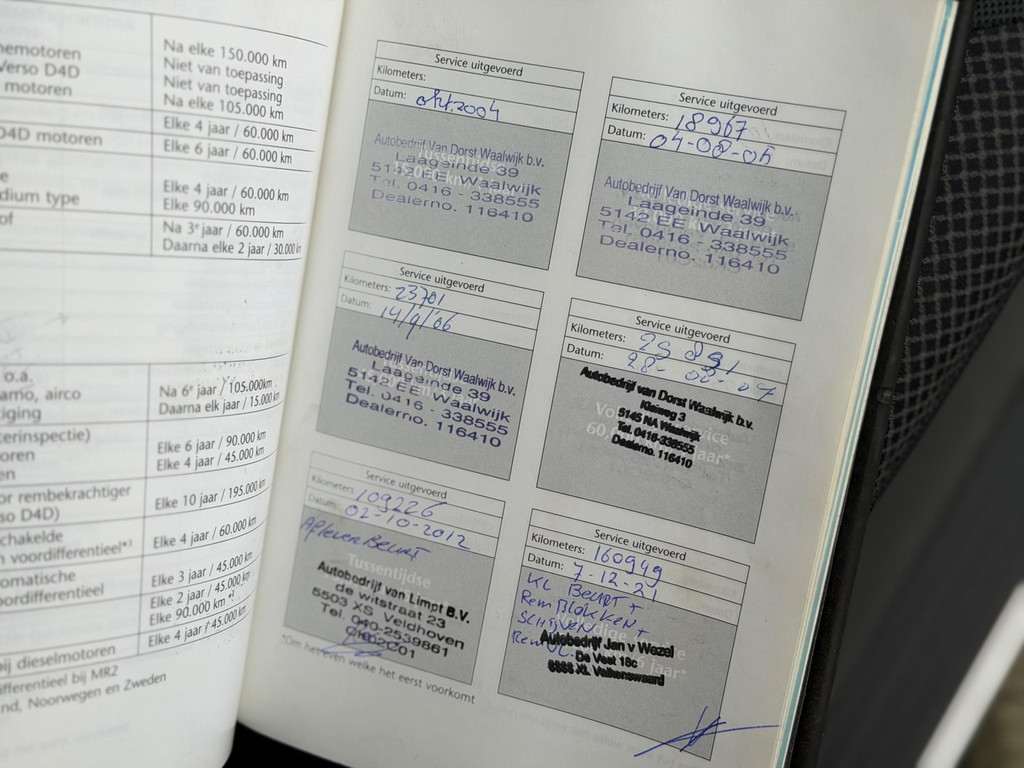 nemotoren
Verso D4D
motoren
Na elke 150.000 km
Niet van toepassing
Niet van toepassing
Na elke 105.000 km
Elke 4 jaar / 60.000 km
D4D motoren
Elke 6 jaar / 60.000 km
e
dium type
Elke 4 jaar / 60.000 km
Elke 90.000 km
of
Na 3e jaar / 60.000 km
Daarna elke 2 jaar / 30.000 km
o.a.
amo, airco
tiging
Na 6e jaar / 105.000km
Daarna elk jaar / 15.000 km
terinspectie)
oren
en
Elke 6 jaar / 90.000 km
Elke 4 jaar / 45.000 km
or rembekrachtiger
so D4D)
Elke 10 jaar / 195.000 km
chakelde
n voordifferentieel*³
Elke 4 jaar / 60.000 km
omatische
oordifferentieel
Elke 3 jaar / 45.000 km
Elke 2 jaar / 45.000 km
Elke 90.000 km *²
Elke 4 jaar / 45.000 km
bij dieselmotoren
ifferentieel bij MR2
nd, Noorwegen en Zweden
Service uitgevoerd
Kilometers:
Datum: okt.2004
Autobedrijf Van Dorst Waalwijk b.v.
Laageinde 39
5142 EE Waalwijk
Tel. 0416 - 338555
Dealerno. 116410
Service uitgevoerd
Kilometers: 18967
Datum: 04-08-05
Autobedrijf Van Dorst Waalwijk b.v.
Laageinde 39
5142 EE Waalwijk
Tel. 0416 - 338555
Dealerno. 116410
Service uitgevoerd
Kilometers: 23701
Datum: 14/9/06
Autobedrijf Van Dorst Waalwijk b.v.
Laageinde 39
5142 EE Waalwijk
Tel. 0416 - 338555
Dealerno. 116410
Service uitgevoerd
Kilometers:
Datum: 28-02-07
Autobedrijf van Dorst Waalwijk b.v.
Kleiweg 3
5145 NA Waalwijk
Tel. 0416-338555
Dealerno. 116410
Service uitgevoerd
Kilometers: 109226
Datum: 02-10-2012
Aflever Beurt
Tussentijdse
Autobedrijf van Limpt B.V.
de witstraat 23
5503 XS Veldhoven
Tel. 040-2539861
Service uitgevoerd
Kilometers: 160949
Datum: 7-12-21
KL Beurt +
Remblokken +
Schijven +
Autobedrijf Jan v Wezel
De Vest 18c
XL Valkenswaard
*Om het even welke het eerst voorkomt